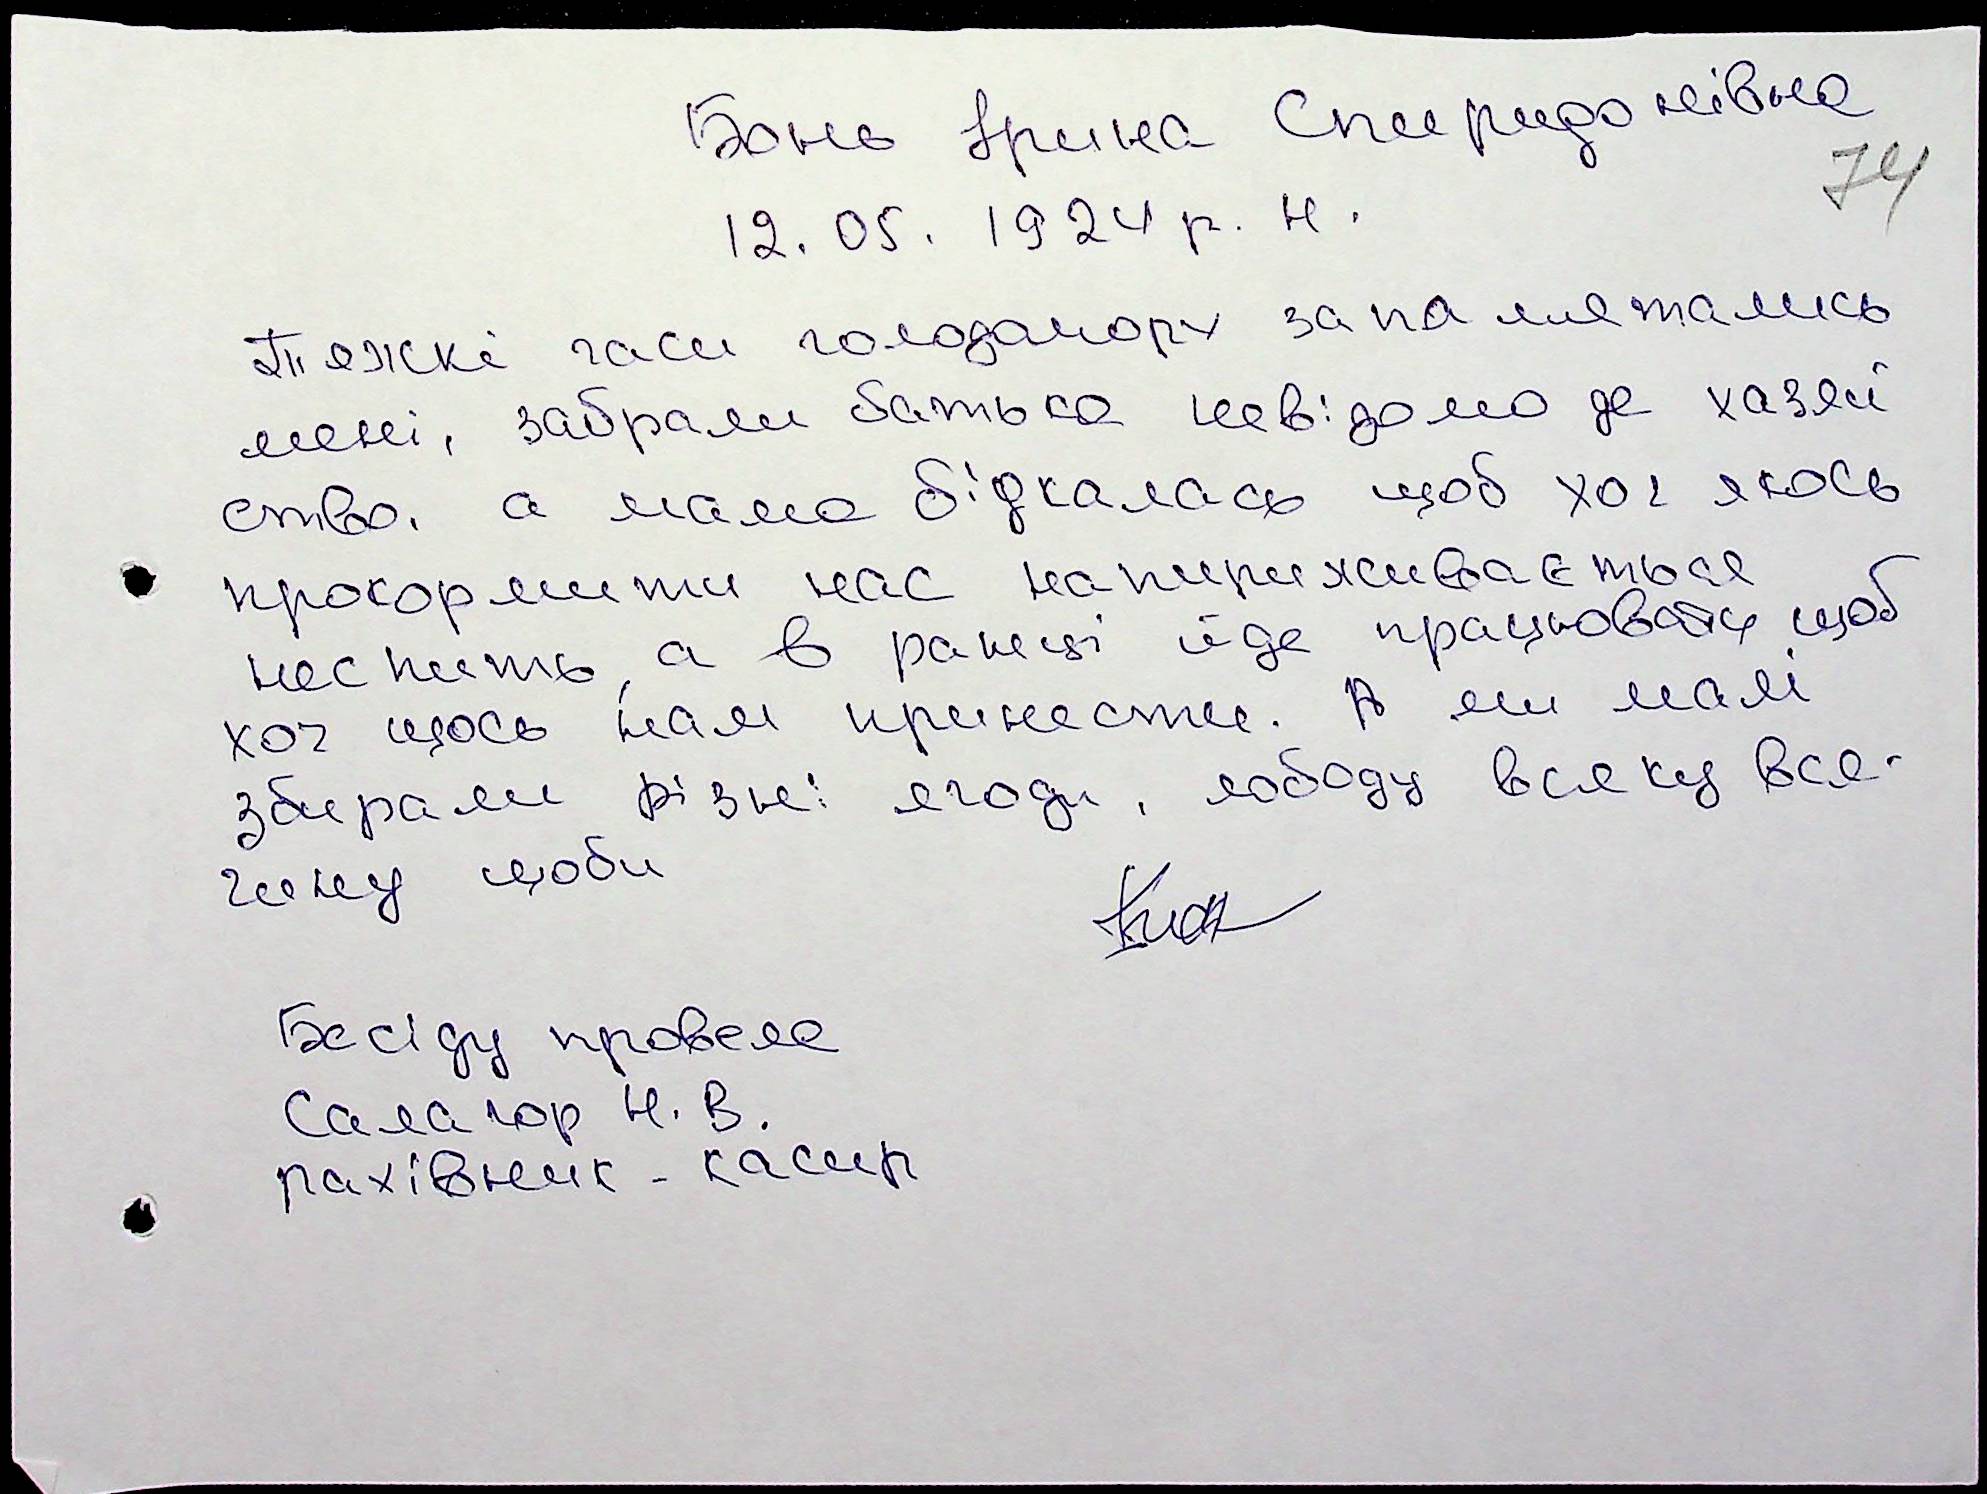 Бонь Ірина Спиридонівна
74
12.05.1924 р. н.
Тяжкі часи голодомору запамятались
мені, забрали батька невідомо де хазяй
ство. а мама бідкалась щоб хоч якось
прокормити нас напириживається
неспить, а в ранці йде працювати щоб
хоч щось нам принести. А ми малі
збирали різні ягоди, лободу всяку вся-
чину щоби
Бесіду провела
Салагор Н. В.
рахівник - касир